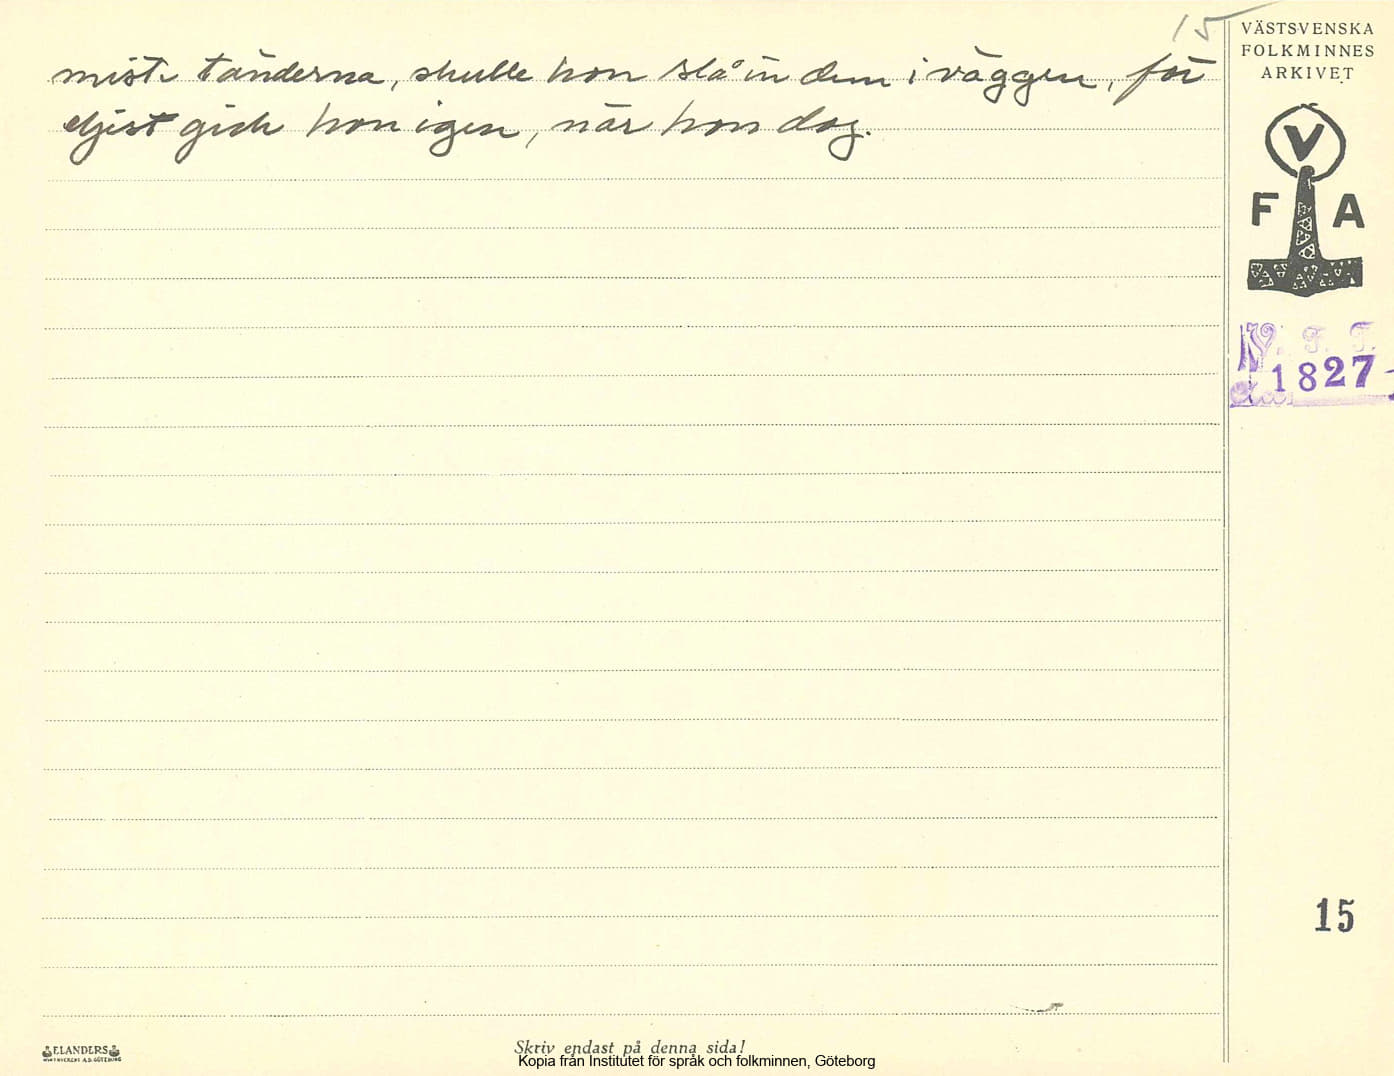 15
miste tänderna, skulle hon slå in dem i väggen, för
eljest gick hon igen, när hon dog.
VÄSTSVENSKA
FOLKMINNES
ARKIVET
V
F A
V. F. F.
1827
15
ELANDERS
Skriv endast på denna sida!
Kopia från Institutet för språk och folkminnen, Göteborg